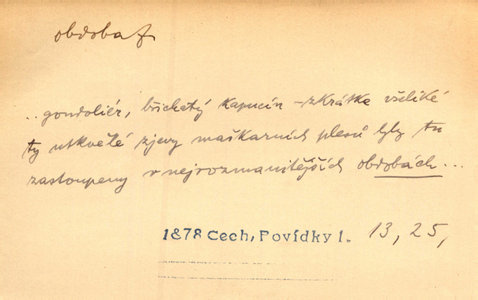 obdoba f
..gondoliér, břichatý kapucín – zkrátka veliké
ty utkvělé zjevy maškarních plesů byly tu
zastoupeny v nejrozmanitějších obdobách...
1878 Cech, Povídky I. 13, 25,